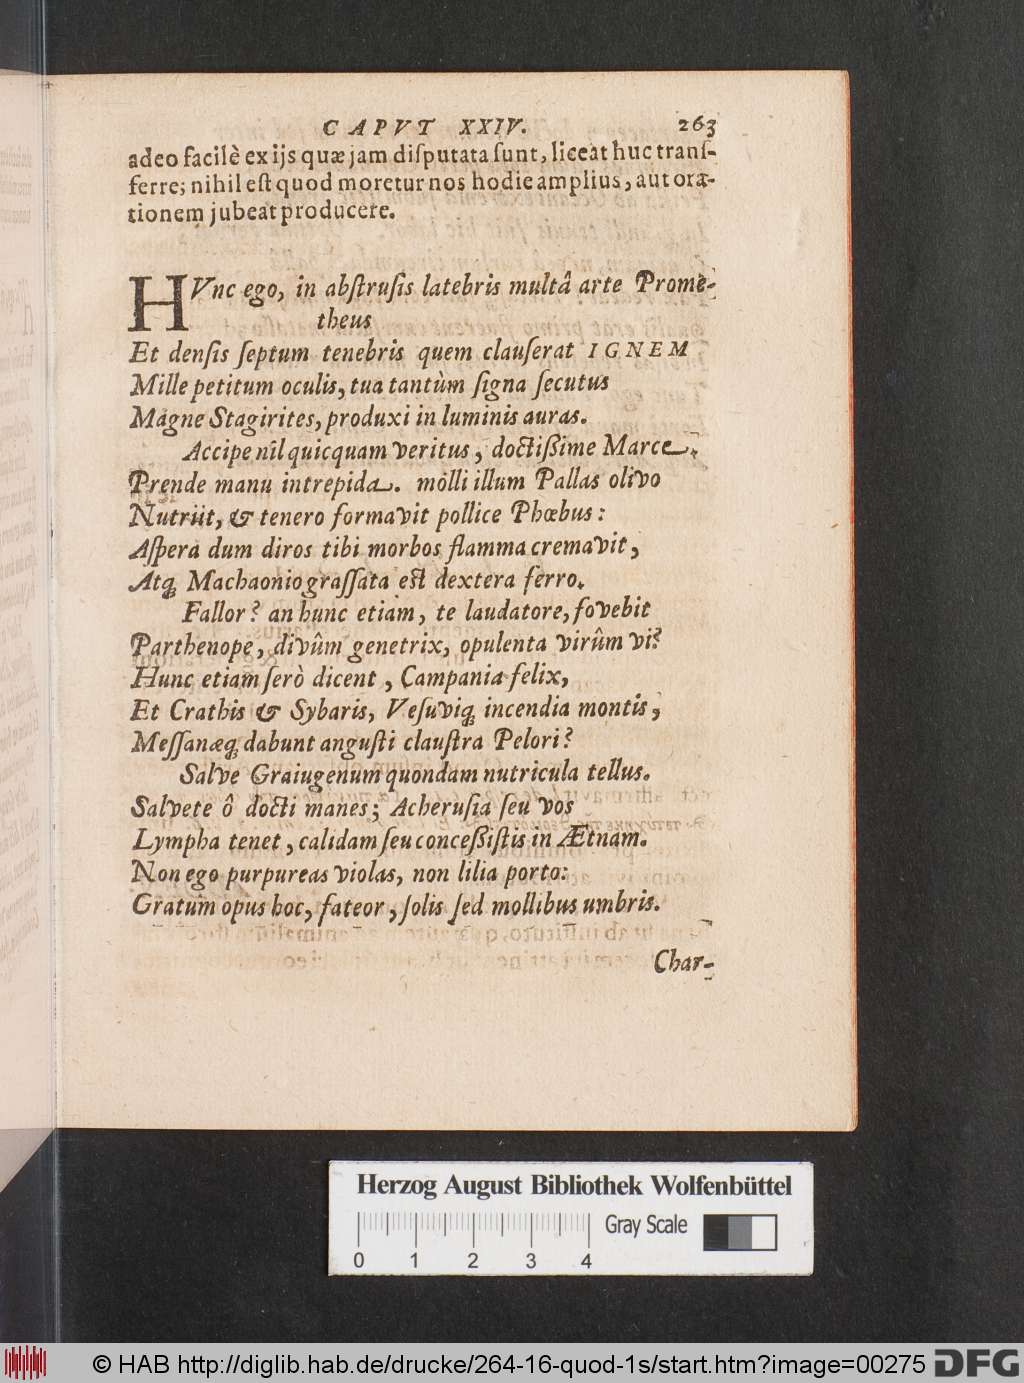 CAPVT XXIV. 263
adeo facilè ex ijs quæ jam disputata sunt, liceat huc trans-
ferre; nihil est quod moretur nos hodie amplius, aut ora-
tionem jubeat producere.
HVnc ego, in abstrusis latebris multâ arte Prome-
theus
Et densis septum tenebris quem clauserat IGNEM
Mille petitum oculis, tua tantùm signa secutus
Magne Stagirites, produxi in luminis auras.
Accipe nîl quicquam veritus, doctissime Marce.
Prende manu intrepida. molli illum Pallas olivo
Nutriit, & tenero formavit pollice Phœbus:
Aspera dum diros tibi morbos flamma cremavit,
Atq; Machaonio grassata est dextera ferro.
Fallor? an hunc etiam, te laudatore, fovebit
Parthenope, divûm genetrix, opulenta virûm vi?
Hunc etiam serò dicent, Campania felix,
Et Crathis & Sybaris, Vesuviq; incendia montis,
Messanæq; dabunt angusti claustra Pelori?
Salve Graiugenum quondam nutricula tellus.
Salvete ô docti manes; Acherusia seu vos
Lympha tenet, calidam seu concessistis in Ætnam.
Non ego purpureas violas, non lilia porto:
Gratum opus hoc, fateor, solis sed mollibus umbris.
Char-
Herzog August Bibliothek Wolfenbüttel
Gray Scale
0 1 2 3 4
© HAB http://diglib.hab.de/drucke/264-16-quod-1s/start.htm?image=00275 DFG